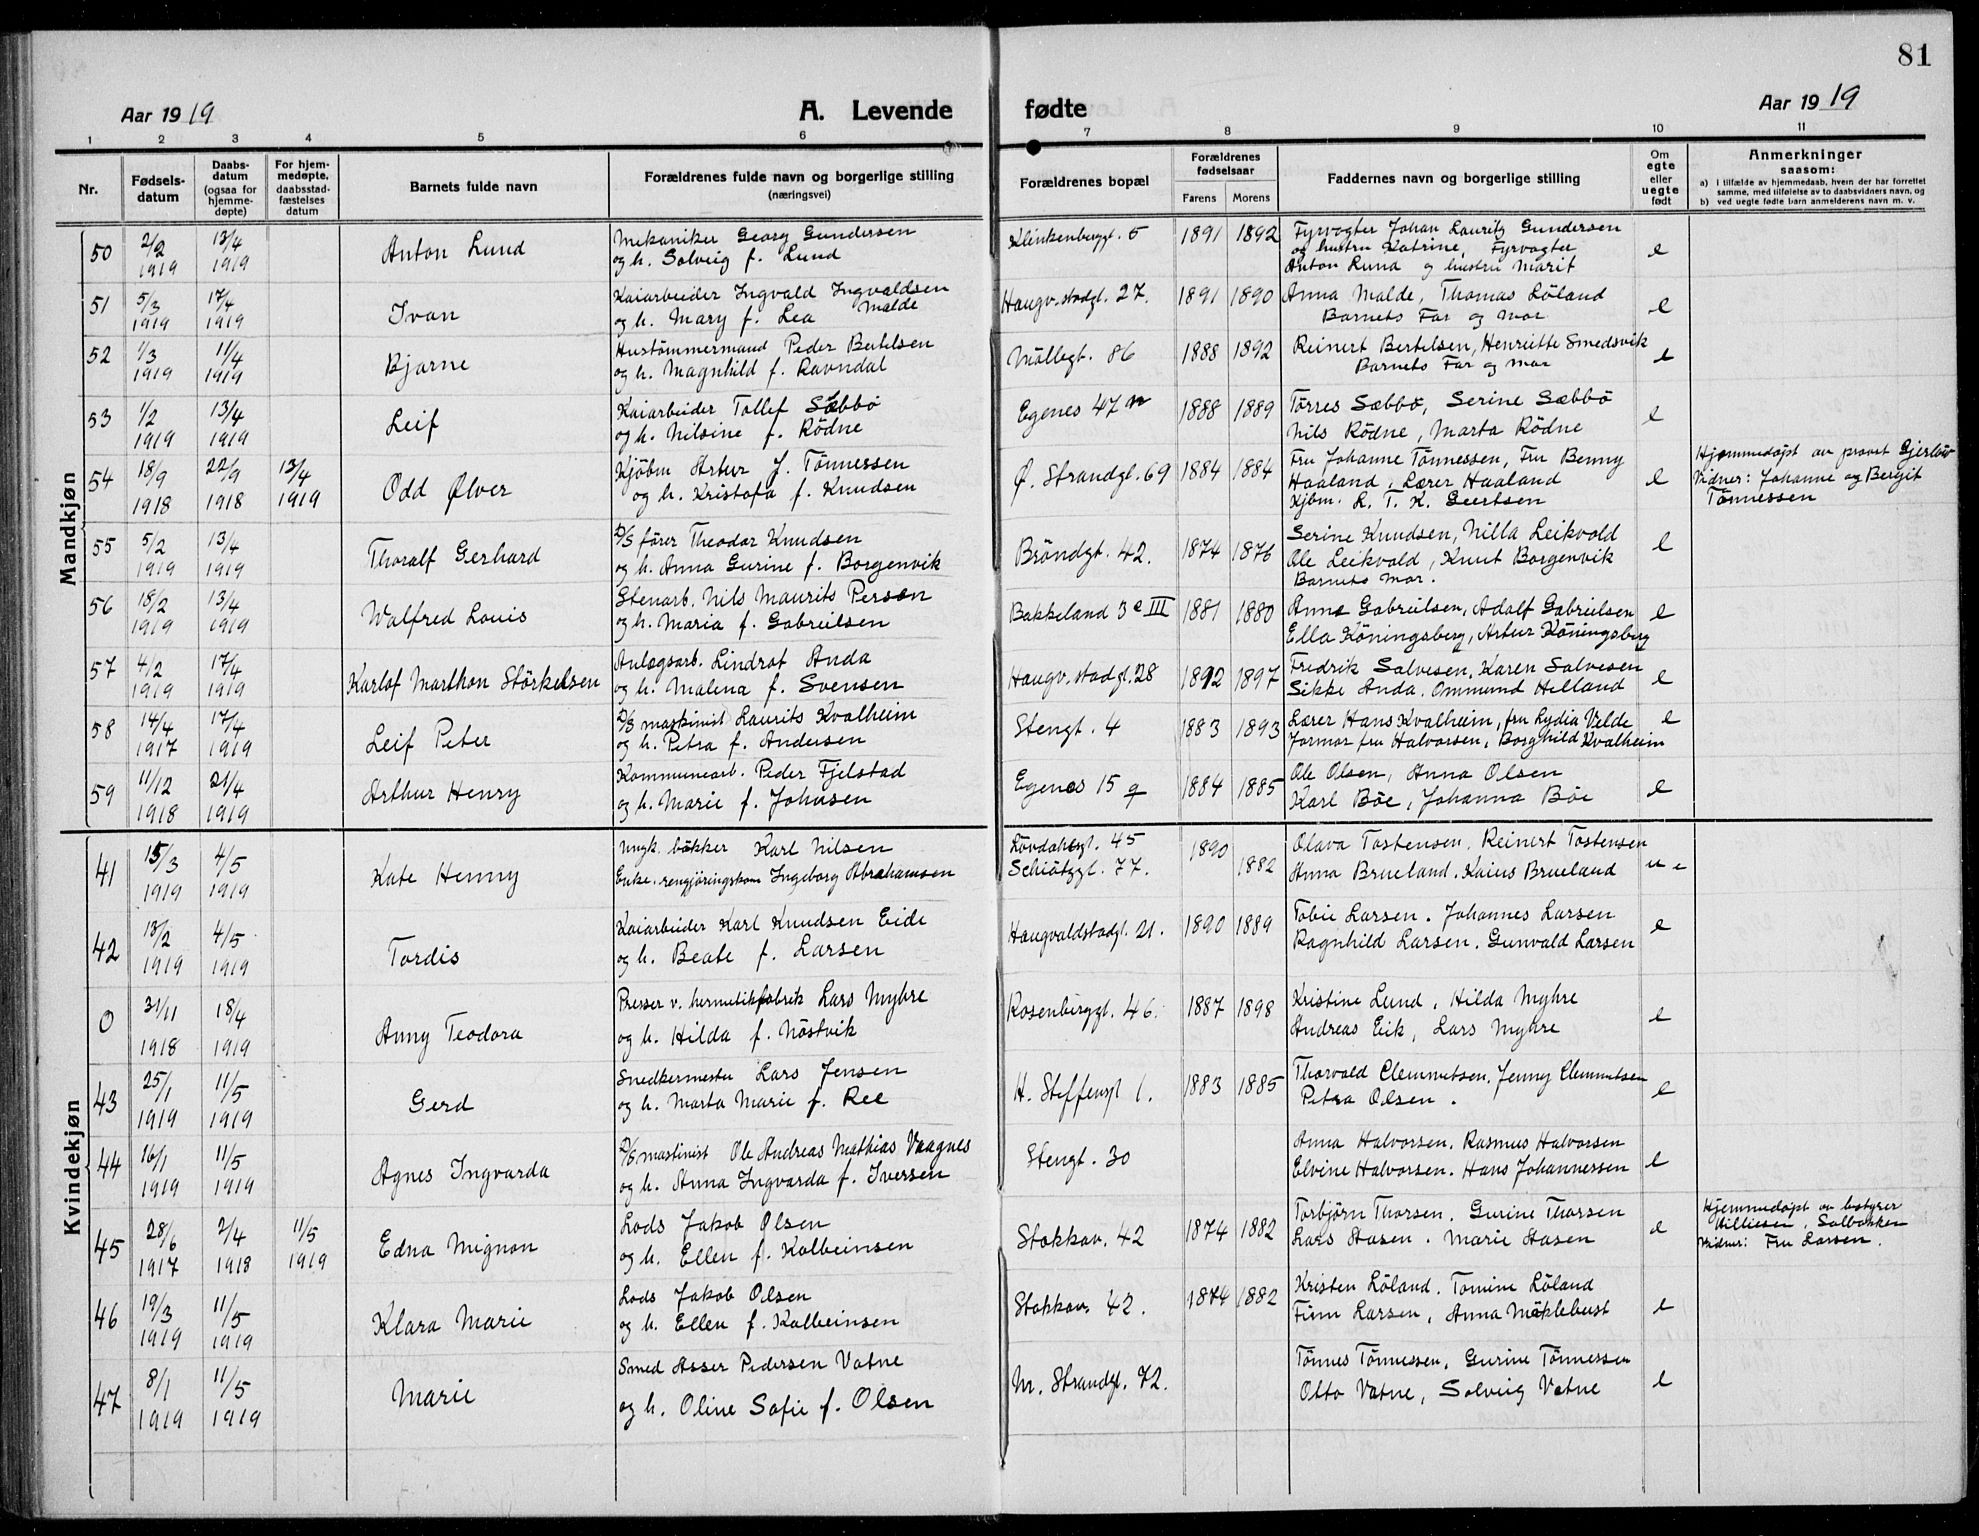 81
Aar 1919
A. Levende fødte
Aar 1919
1 2 3 4 5 6 7 8 9 10 11
Nr.
Fødsels-datum
Daabs-datum (ogsaa for hjemme-døpte)
For hjem-medøpte, daabsstad-fæstelses datum
Barnets fulde navn
Forældrenes fulde navn og borgerlige stilling
(næringsvei)
Forældrenes bopæl
Forældrenes fødselsaar
Farens Morens
Faddernes navn og borgerlige stilling
Om egte eller uegte født
Anmerkninger
saasom:
a) I tilfælde av hjemmedaab, hvem der har forrettet
samme, med tilføielse av to daabsvidners navn, og
b) ved uegte fødte barn anmelderens navn m. v.
Mandkjøn
50 2/2 1919 13/4 1919 Anton Lund
Mekaniker Georg Gundersen
og h. Solveig f. Lund
Klinkenberggt. 5 1891 1892
Fyrvogter Johan Lauritz Gundersen
og hustru Katrine, Fyrvogter
Anton Lund og hustru Marit
e
51 5/3 1919 17/4 1919 Ivan
Kaiarbeider Ingvald Ingvaldsen Malde
og h. Mary f. Lea
Haugv.stadgt. 27. 1891 1890
Anna Malde, Thomas Löland
Barnets Far og mor
e
52 1/3 1919 11/4 1919 Bjarne
Hustömmermand Peder Bertelsen
og h. Magnhild f. Ravndal
Möllegt. 86 1888 1892
Reinert Bertelsen, Henriette Smedsvik
Barnets Far og mor
e
53 1/2 1919 13/4 1919 Leif
Kaiarbeider Tollef Sæbbö
og h. Nilsine f. Rödne
Egenes 47 n 1888 1889
Törres Sæbbö, Serine Sæbbö
Nils Rödne, Marta Rödne
e
54 18/9 1918 22/9 1918 13/4 1919 Odd Ølver
Kjöbm Artur J. Tönnessen
og h. Kristofa f. Knudsen
Ø. Strandgt. 69 1884 1884
Fru Johanne Tönnessen, Fru Benny
Haaland, Lærer Haaland
Kjbm. L. T. K. Geertsen
e
Hjemmedöpt av provst Gjerlöw
Vidner: Johanne og Bergit
Tönnessen
55 5/2 1919 13/4 1919 Thoralf Gerhard
D/S förer Theodor Knudsen
og h. Anna Gurine f. Borgenvik
Bröndgt. 42. 1874 1876
Serine Knudsen, Nilla Leikvold
Ole Leikvold, Knut Borgenvik
Barnets mor.
e
56 18/2 1919 13/4 1919 Walfred Louis
Stenarb. Nils Maurits Person
og h. Maria f. Gabrielsen
Bakkeland 3 e III 1881 1880
Anna Gabrielsen, Adolf Gabrielsen
Ella Köningsberg, Artur Köningsberg
e
57 4/2 1919 17/4 1919 Karlof Marthon Störkelsen
Anlægsarb. Lindrot Anda
og h. Malena f. Svensen
Haugv.stadgt. 28 1892 1897
Fredrik Salvesen, Karen Salvesen
Sikke Anda, Ommund Helland
e
58 14/4 1917 17/4 1919 Leif Peter
D/S maskinist Laurits Kvalheim
og h. Petra f. Andersen
Stengt. 4 1883 1893
Lærer Hans Kvalheim, fru Lydia Velde
Jormor fru Halvorsen, Borghild Kvalheim
e
59 11/12 1918 21/4 1919 Arthur Henry
Kommunearb. Peder Fjelstad
og h. Marie f. Johnsen
Egenes 15 q 1884 1885
Ole Olsen, Anna Olsen
Karl Böe, Johanna Böe
e
Kvindekjøn
41 15/3 1919 4/5 1919 Kate Henny
Ungk. bakker Karl Nilsen
Enke, rengjöringskone Ingeborg Abrahamsen
Lövdahlsgt. 45
Schiötzgt. 77. 1890 1882
Olava Tostensen, Reinert Tostensen
Anna Brueland, Kaius Brueland
u e
42 13/2 1919 4/5 1919 Tordis
Kaiarbeider Karl Knudsen Eide
og h. Beate f. Larsen
Haugvaldstadgt. 21. 1890 1889
Tobie Larsen. Johannes Larsen
Ragnhild Larsen. Gunvald Larsen
e
0 31/11 1918 18/4 1919 Anny Teodora
Presser v. hermetikfabrik Lars Myhre
og h. Hilda f. Nöstvik
Rosenberggt. 46. 1887 1898
Kristine Lund, Hilda Myhre
Andreas Eik, Lars Myhre
e
43 25/1 1919 11/5 1919 Gerd
Snedkermester Lars Jensen
og h. Marta Marie f. Ree
H. Steffensgt 1. 1883 1885
Thorvald Clemmetsen, Jenny Clemmetsen
Petra Olsen.
e
44 16/1 1919 11/5 1919 Agnes Ingvarda
D/S maskinist Ole Andreas Mathias Vaagnes
og h. Anna Ingvarda f. Iversen
Stengt. 30
Anna Halvorsen. Rasmus Halvorsen
Elvine Halvorsen. Hans Johannessen
e
45 28/6 1917 2/4 1918 11/5 1919 Edna Mignon
Lods Jakob Olsen
og h. Ellen f. Kolbeinsen
Stokkav. 42 1874 1882
Torbjörn Thorsen. Gurine Thorsen
Lars Aasen. Marie Aasen
e
Hjemmedöpt av bestyrer
Solbakken
Vidner: Fru Larsen.
46 19/3 1919 11/5 1919 Klara Marie
Lods Jakob Olsen
og h. Ellen f. Kolbeinsen
Stokkav. 42. 1874 1882
Kristen Löland. Tomine Löland
Finn Larsen, Anna Mæklebust
e
47 8/1 1919 11/5 1919 Marie
Smed Asser Pedersen Vatne
og h. Oline Sofie f. Olsen
N. Strandgt. 72.
Tönnes Tönnessen, Gurine Tönnessen
Otto Vatne, Solveig Vatne
e